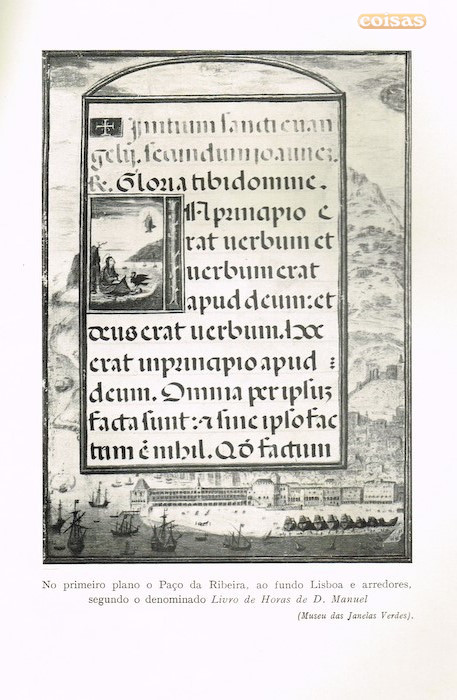 coisas
Initium sancti euan
gelij. secundum ioannez.
R. Gloria tibi domine.
IN principio e
rat uerbum et
uerbum erat
apud deum: et
deus erat uerbum. hoc
erat in principio apud :
deum. Omnia per ipsuz
facta sunt: ⁊ sine ipso fac
tum ē nihil. Qō factum
No primeiro plano o Paço da Ribeira, ao fundo Lisboa e arredores,
segundo o denominado Livro de Horas de D. Manuel
(Museu das Janelas Verdes).